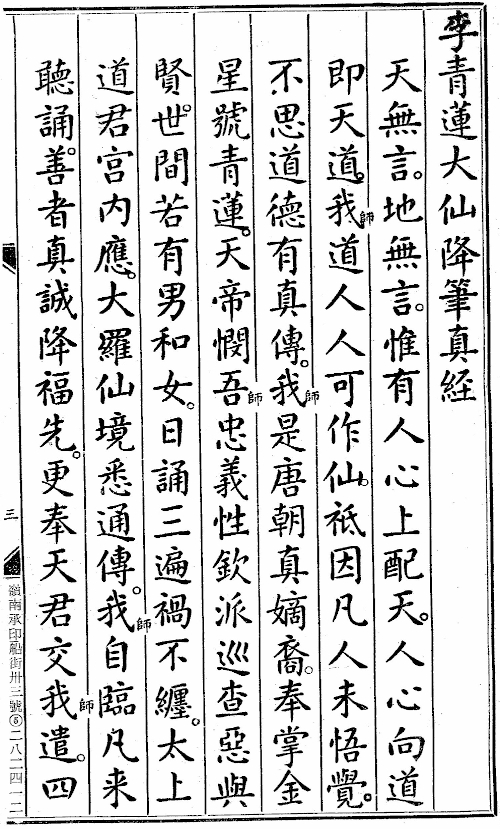 李青蓮大仙降筆真経
天無言。地無言。惟有人心上配天。人心向道
即天道。我師道人人可作仙。祇因凡人未悟覺。
不思道德有真傳。我師是唐朝真嫡裔。奉掌金
星號青蓮。天帝憫吾師忠義性欽派巡查惡與
賢。世間若有男和女。日誦三遍禍不纏。太上
道君宮內應。大羅仙境悉通傳。我師自臨凡来
聽誦。善者真誠降福先。更奉天君交我師遣。四
三
嶺南承印船街卅三號⑤二八二四一二